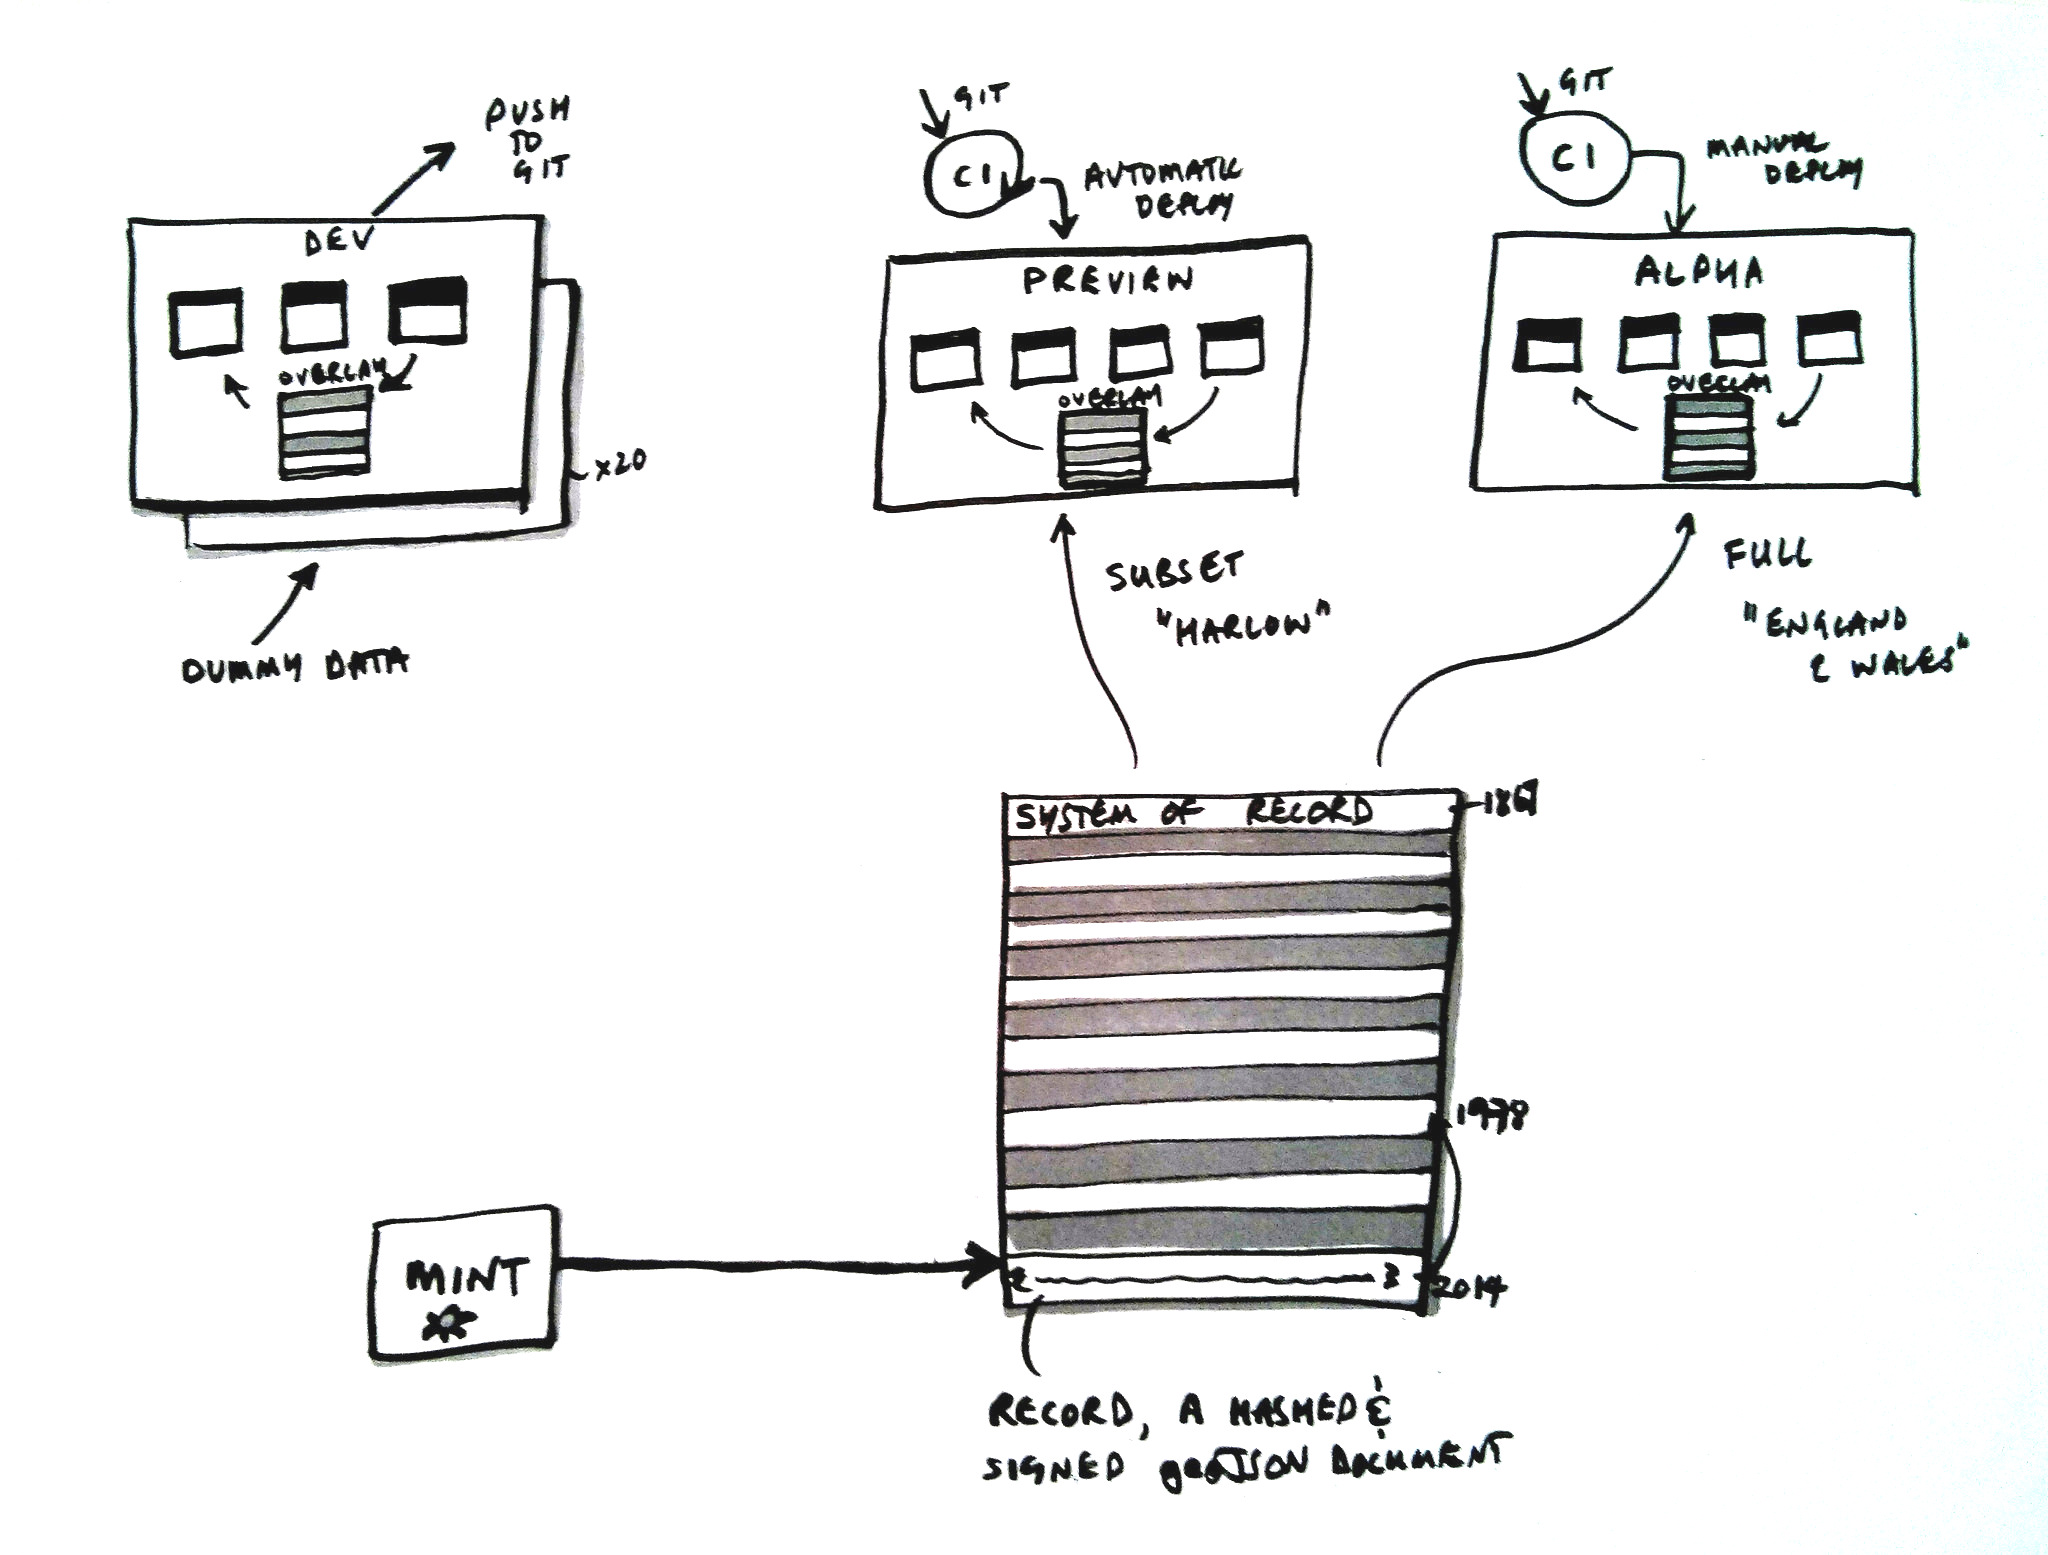 PUSH
TO
GIT
DEV
OVERLAY
x20
DUMMY DATA
GIT
CI
AUTOMATIC
DEPLOY
PREVIEW
OVERLAY
SUBSET
"HARLOW"
GIT
CI
MANUAL
DEPLOY
ALPHA
OVERLAY
FULL
"ENGLAND
& WALES"
SYSTEM OF RECORD
1978
{ }
2014
MINT
RECORD, A HASHED &
SIGNED geoJSON DOCUMENT